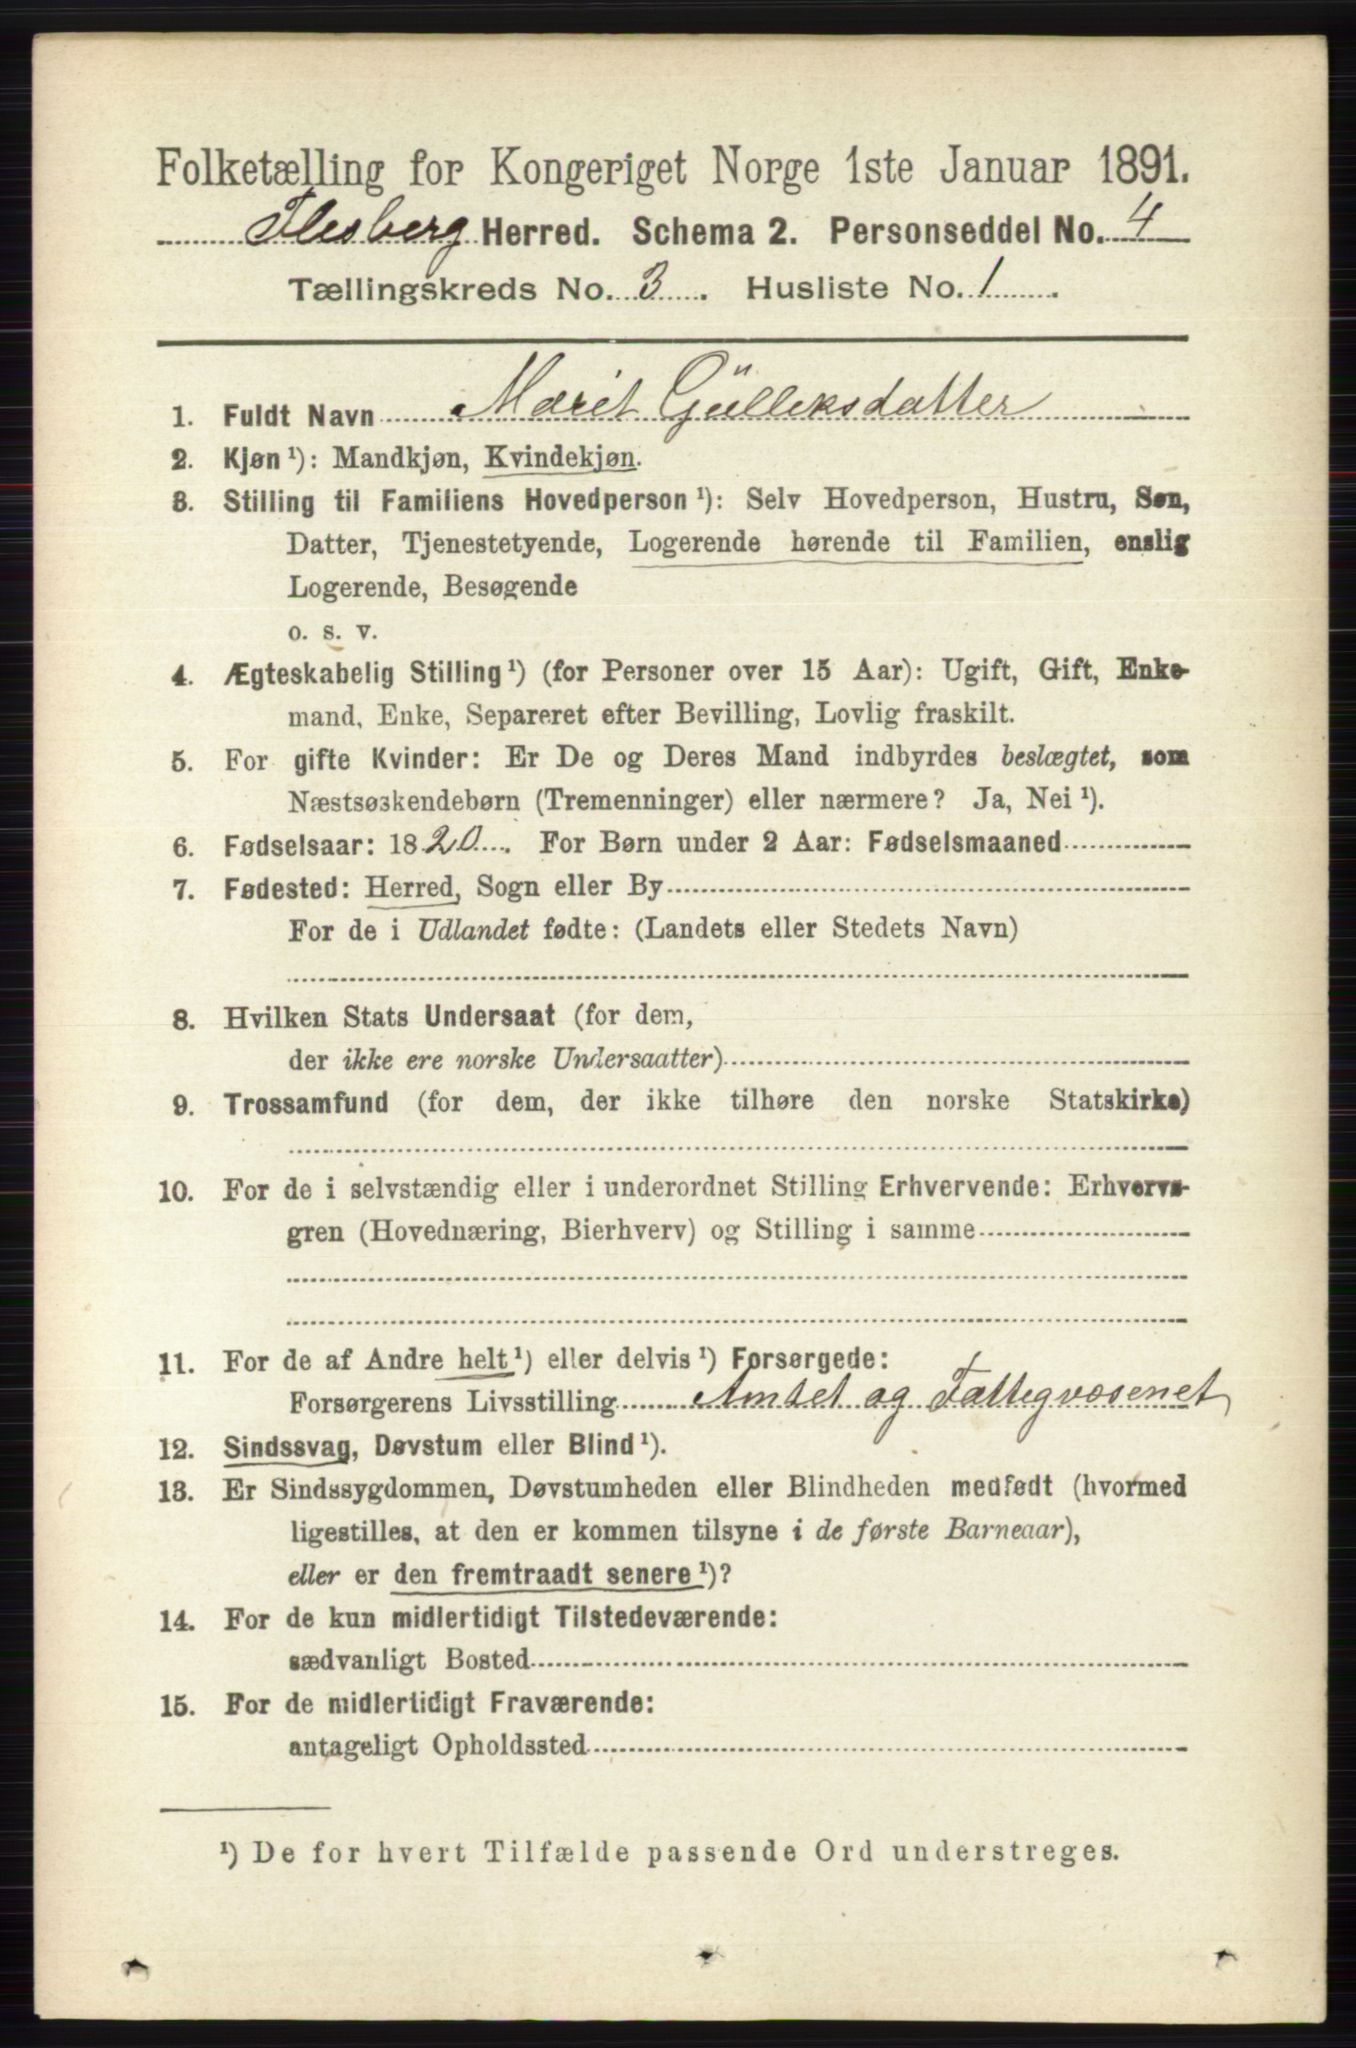 Folketælling for Kongeriget Norge 1ste Januar 1891.
Flesberg Herred. Schema 2. Personseddel No. 4
Tællingskreds No. 3. Husliste No. 1.
1. Fuldt Navn Marit Gulleksdatter
2. Kjøn ¹): Mandkjøn, Kvindekjøn.
3. Stilling til Familiens Hovedperson ¹): Selv Hovedperson, Hustru, Søn,
Datter, Tjenestetyende, Logerende hørende til Familien, enslig
Logerende, Besøgende
o. s. v.
4. Ægteskabelig Stilling ¹) (for Personer over 15 Aar): Ugift, Gift, Enke-
mand, Enke, Separeret efter Bevilling, Lovlig fraskilt.
5. For gifte Kvinder: Er De og Deres Mand indbyrdes beslægtet, som
Næstsøskendebørn (Tremenninger) eller nærmere? Ja, Nei ¹).
6. Fødselsaar: 1820. For Børn under 2 Aar: Fødselsmaaned
7. Fødested: Herred, Sogn eller By
For de i Udlandet fødte: (Landets eller Stedets Navn)
8. Hvilken Stats Undersaat (for dem,
der ikke ere norske Undersaatter)
9. Trossamfund (for dem, der ikke tilhøre den norske Statskirke)
10. For de i selvstændig eller i underordnet Stilling Erhvervende: Erhvervs-
gren (Hovednæring, Bierhverv) og Stilling i samme
11. For de af Andre helt ¹) eller delvis ¹) Forsørgede:
Forsørgerens Livsstilling Amtet og Fattigvæsenet
12. Sindssvag, Døvstum eller Blind ¹).
13. Er Sindssygdommen, Døvstumheden eller Blindheden medfødt (hvormed
ligestilles, at den er kommen tilsyne i de første Barneaar),
eller er den fremtraadt senere ¹)?
14. For de kun midlertidigt Tilstedeværende:
sædvanligt Bosted
15. For de midlertidigt Fraværende:
antageligt Opholdssted
¹) De for hvert Tilfælde passende Ord understreges.